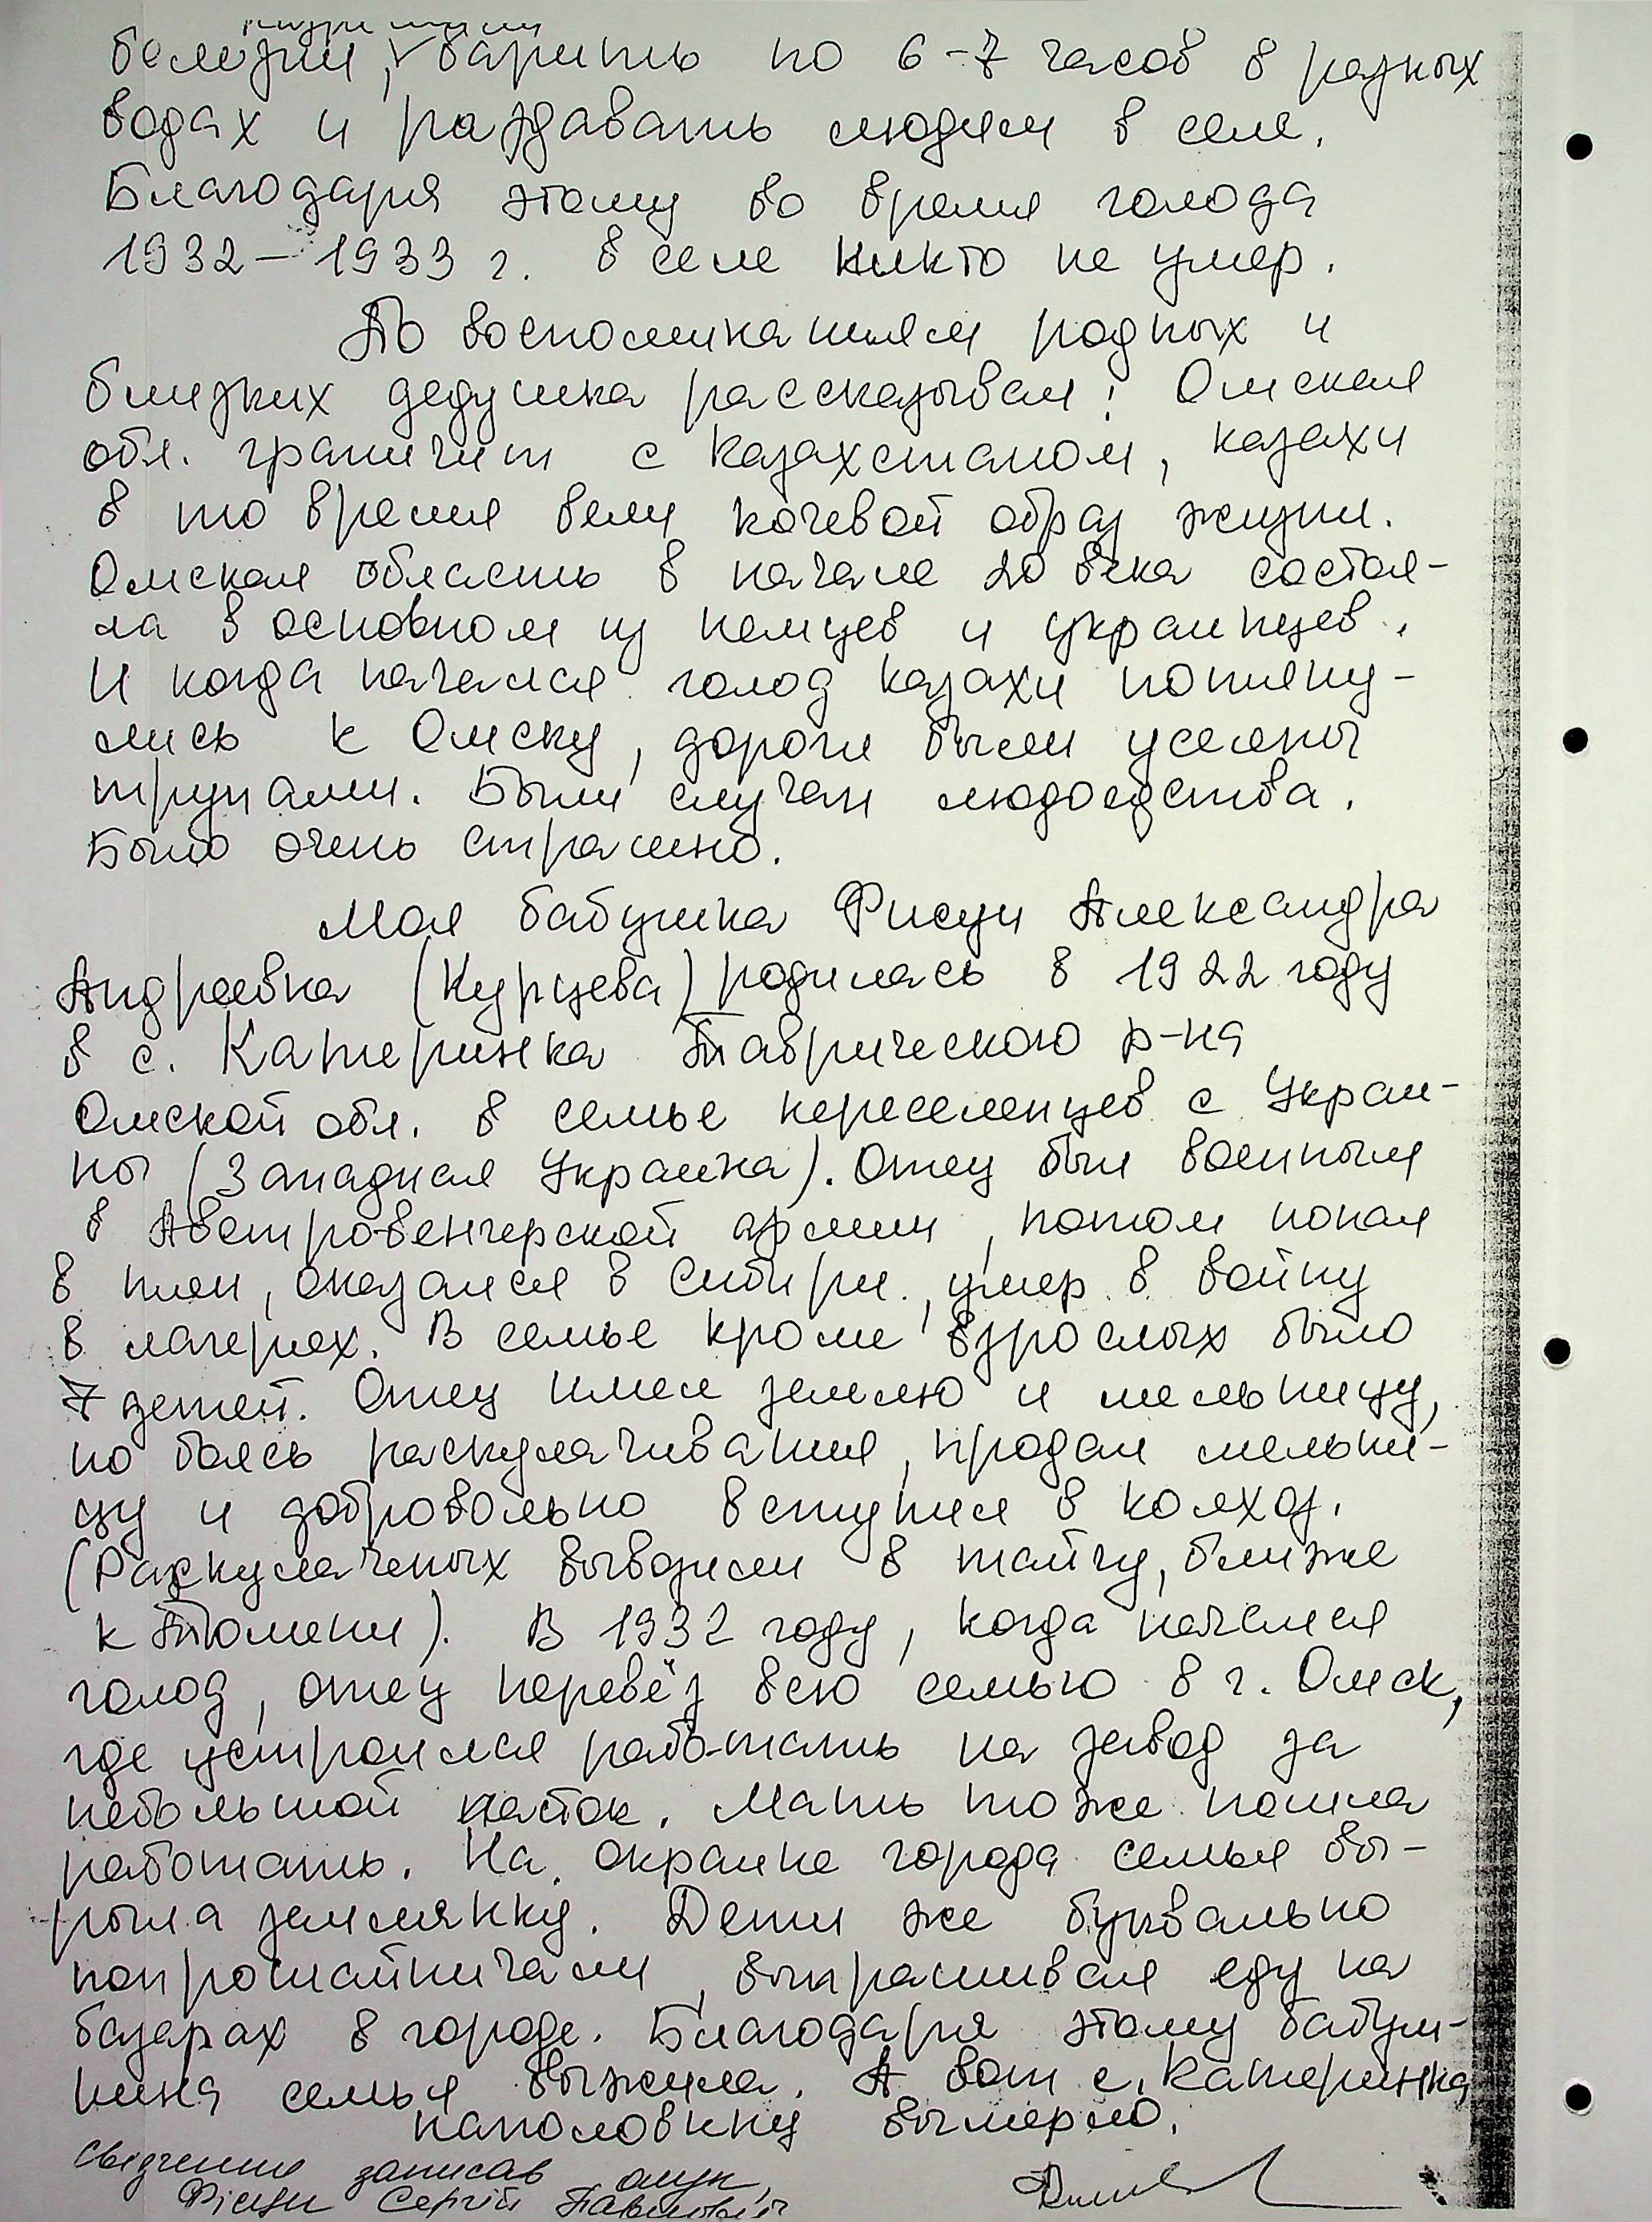 болезни, варить по 6-7 часов в разных
водах и раздавать людям в селе.
Благодаря этому во время голода
1932-1933 г. в селе никто не умер.
По воспоминаниям родных и
близких дедушка рассказывал: Омская
обл. граничит с Казахстаном, казахи
в то время вели кочевой образ жизни.
Омская область в начале 20 века состоя-
ла в основном из немцев и украинцев.
И когда начался голод казахи потяну-
лись к Омску, дороги были уселены
трупами. Были случаи людоедства.
Было очень страшно.
Моя бабушка Фисун Александра
Андреевна (Курцева) родилась в 1922 году
в с. Катеринка Таврического р-на
Омской обл. в семье переселенцев с Украи-
ны (Западная Украина). Отец был военным
в Австровенгерской армии, потом попал
в плен, оказался в Сибири, умер в войну
в лагерях. В семье кроме взрослых было
7 детей. Отец имел землю и мельницу,
но боясь раскулачивания, продал мельни-
цу и добровольно вступил в колхоз.
(Раскулаченых вывозили в тайгу, ближе
к Тюмени). В 1932 году, когда начался
голод, отец перевёз всю семью в г. Омск,
где устроился работать на завод за
небольшой паёк. Мать тоже пошла
работать. На окраине города семья вы-
рыла землянку. Дети же буквально
попрошайничали, выпрашивая еду на
базарах в городе. Благодаря этому бабуш-
кина семья выжила. А вот с. Катеринка
наполовину вымерло.
Свідчення записав онук,
Фісун Сергій Павлович